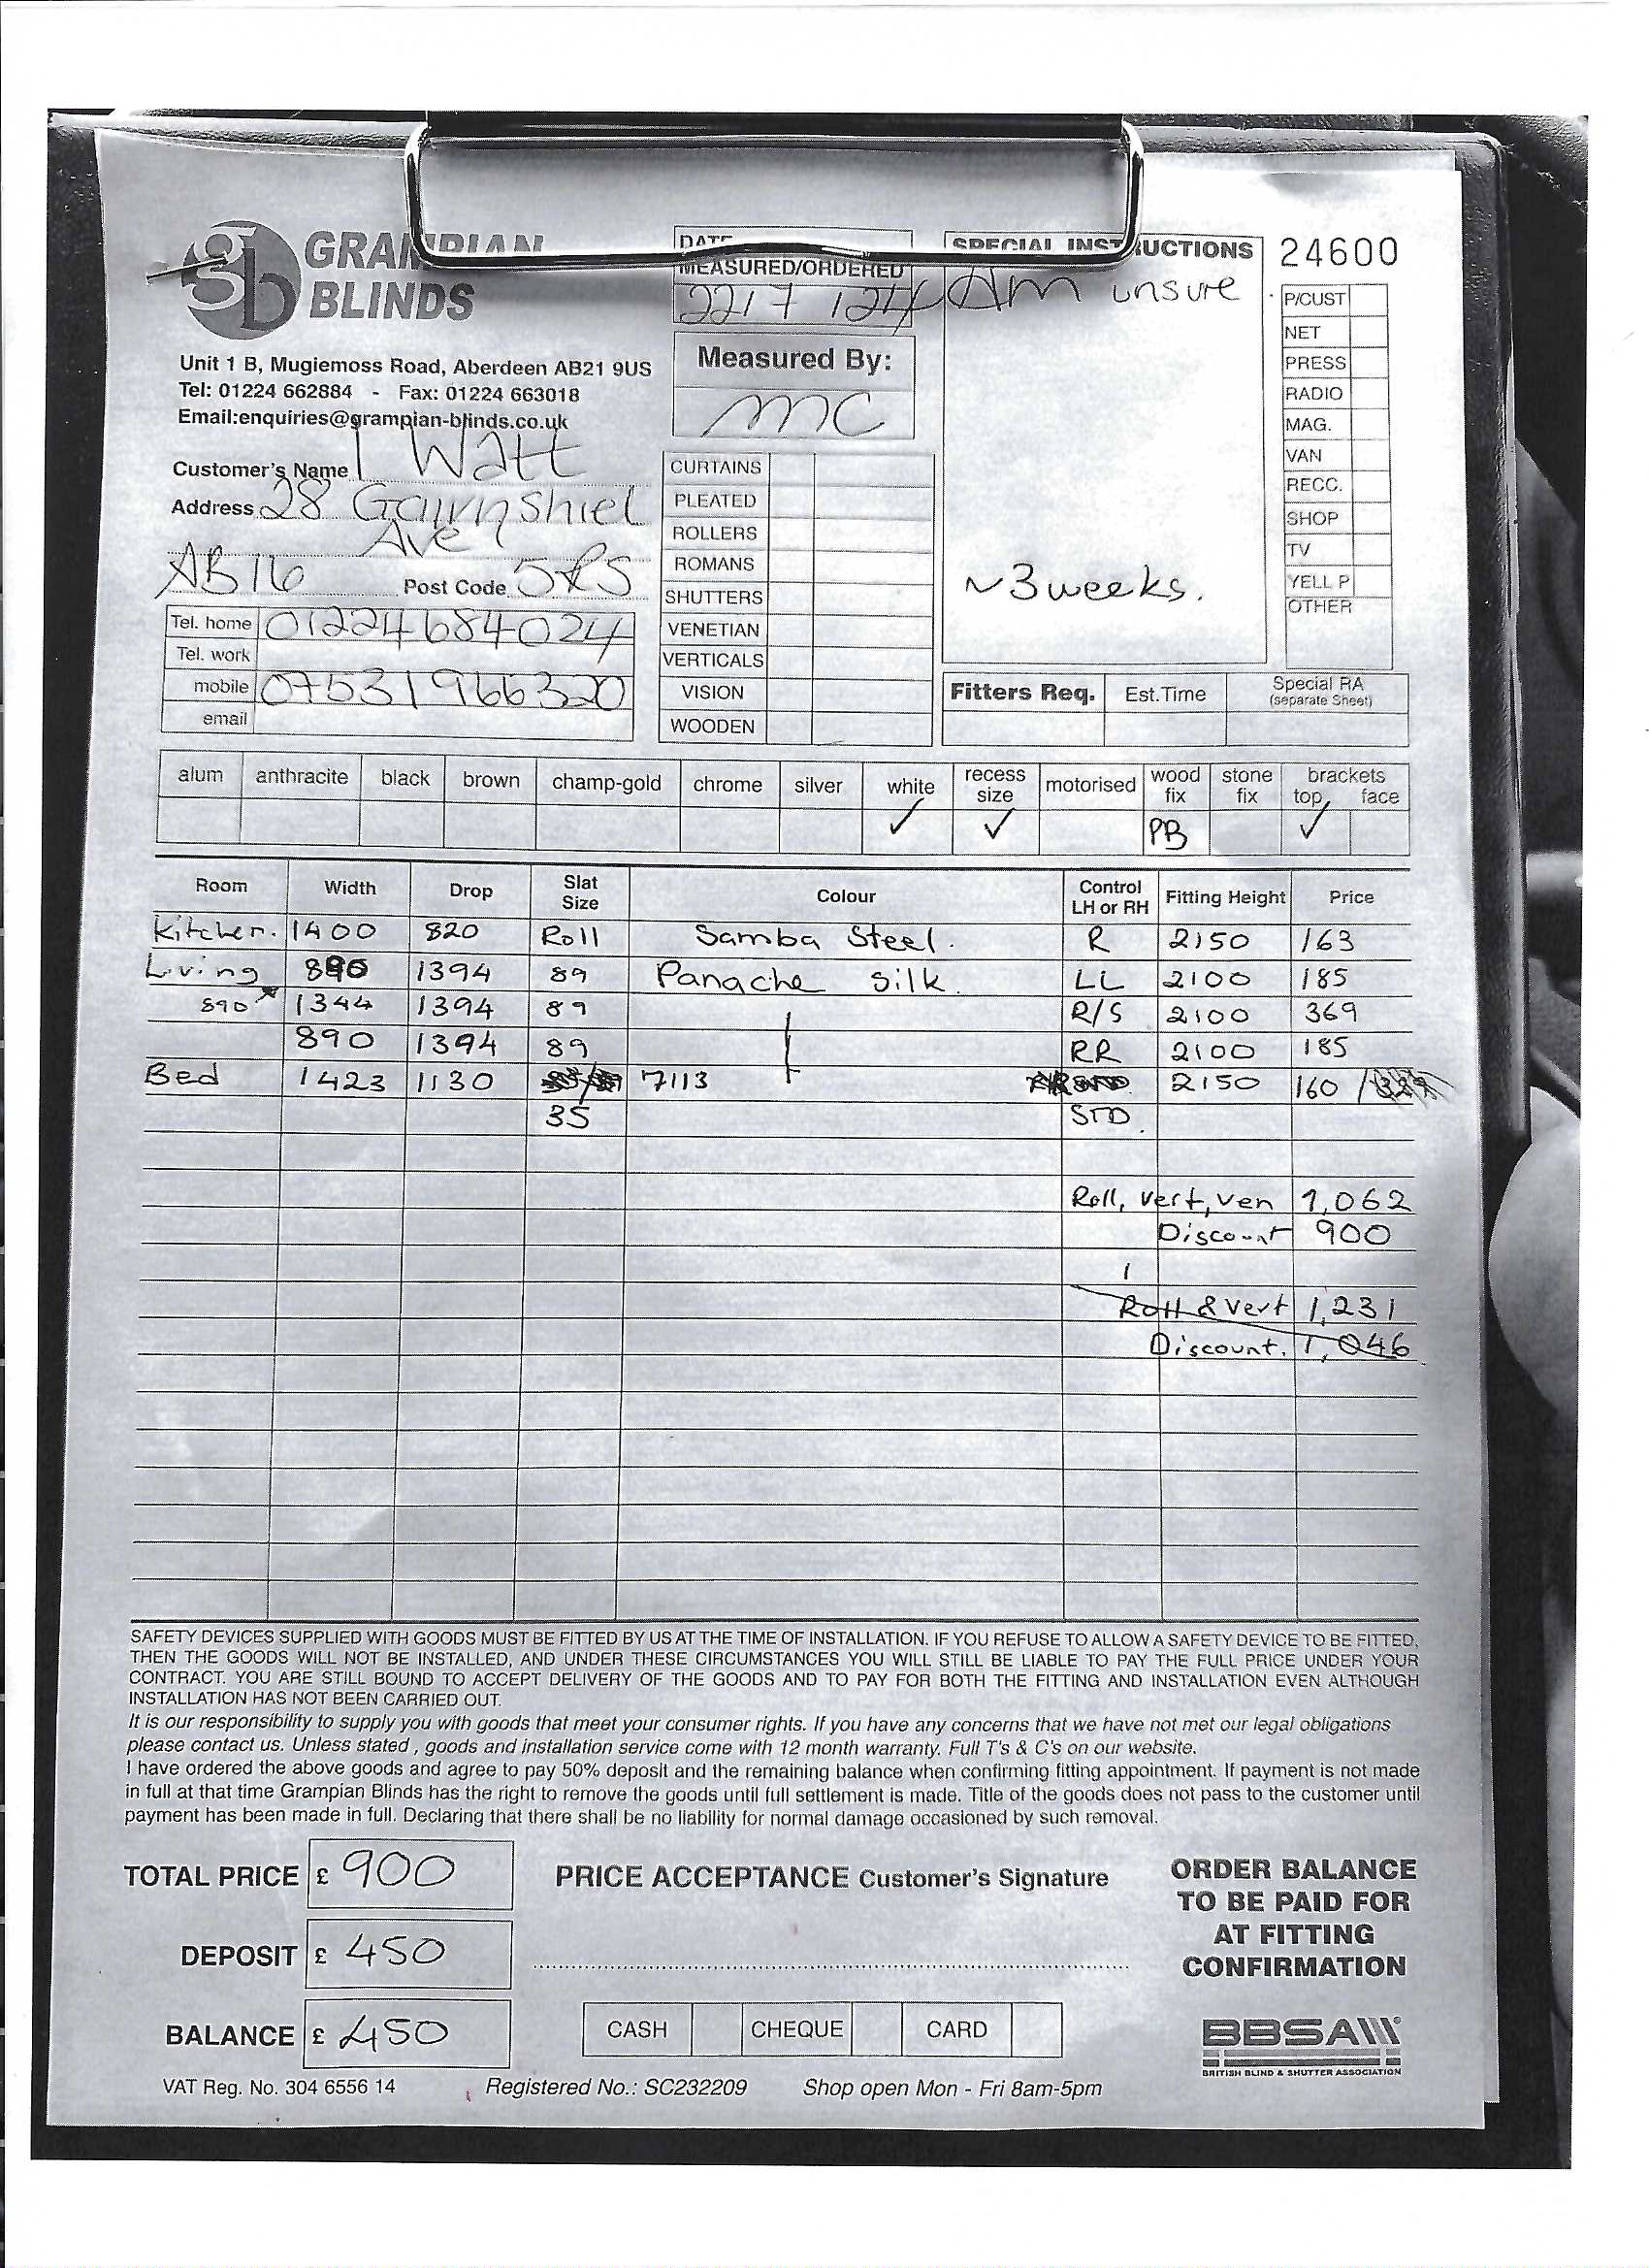 GRAMPIAN
BLINDS
Unit 1 B, Mugiemoss Road, Aberdeen AB21 9US
Tel: 01224 662884 - Fax: 01224 663018
Email:enquiries@grampian-blinds.co.uk
Customer's Name I Watt
Address 28 Gairnshiel
Ave
AB16 Post Code 5RS
Tel. home 01224684024
Tel. work
mobile 07531966320
email
DATE
MEASURED/ORDERED
22/7/24
Measured By:
MC
CURTAINS
PLEATED
ROLLERS
ROMANS
SHUTTERS
VENETIAN
VERTICALS
VISION
WOODEN
SPECIAL INSTRUCTIONS
Am unsure
~3 weeks.
24600
P/CUST
NET
PRESS
RADIO
MAG.
VAN
RECC.
SHOP
TV
YELL P
OTHER
Fitters Req. Est.Time Special RA
(separate Sheet)
alum anthracite black brown champ-gold chrome silver white recess size motorised wood fix stone fix brackets top face
✓ ✓ PB ✓
Room Width Drop Slat Size Colour Control LH or RH Fitting Height Price
Kitchen. 1400 820 Roll Samba Steel. R 2150 163
Living 890 1394 89 Panache Silk. LL 2100 185
890* 1344 1394 89 R/S 2100 369
890 1394 89 RR 2100 185
Bed 1423 1130 7113 2150 160 /
35 STD.
Roll, Vert, Ven 1,062
Discount 900
Roll & Vert 1,231
Discount. 1,046
SAFETY DEVICES SUPPLIED WITH GOODS MUST BE FITTED BY US AT THE TIME OF INSTALLATION. IF YOU REFUSE TO ALLOW A SAFETY DEVICE TO BE FITTED,
THEN THE GOODS WILL NOT BE INSTALLED, AND UNDER THESE CIRCUMSTANCES YOU WILL STILL BE LIABLE TO PAY THE FULL PRICE UNDER YOUR
CONTRACT. YOU ARE STILL BOUND TO ACCEPT DELIVERY OF THE GOODS AND TO PAY FOR BOTH THE FITTING AND INSTALLATION EVEN ALTHOUGH
INSTALLATION HAS NOT BEEN CARRIED OUT.
It is our responsibility to supply you with goods that meet your consumer rights. If you have any concerns that we have not met our legal obligations
please contact us. Unless stated , goods and installation service come with 12 month warranty. Full T's & C's on our website.
I have ordered the above goods and agree to pay 50% deposit and the remaining balance when confirming fitting appointment. If payment is not made
in full at that time Grampian Blinds has the right to remove the goods until full settlement is made. Title of the goods does not pass to the customer until
payment has been made in full. Declaring that there shall be no liability for normal damage occasioned by such removal.
TOTAL PRICE £ 900
DEPOSIT £ 450
BALANCE £ 450
PRICE ACCEPTANCE Customer's Signature
CASH CHEQUE CARD
ORDER BALANCE
TO BE PAID FOR
AT FITTING
CONFIRMATION
BBSA
BRITISH BLIND & SHUTTER ASSOCIATION
VAT Reg. No. 304 6556 14 Registered No.: SC232209 Shop open Mon - Fri 8am-5pm